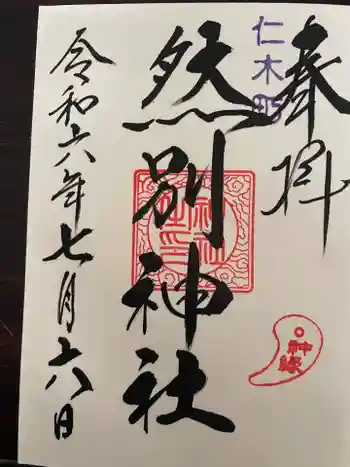 奉拝
仁木町
然別神社
神縁
令和六年七月十六日